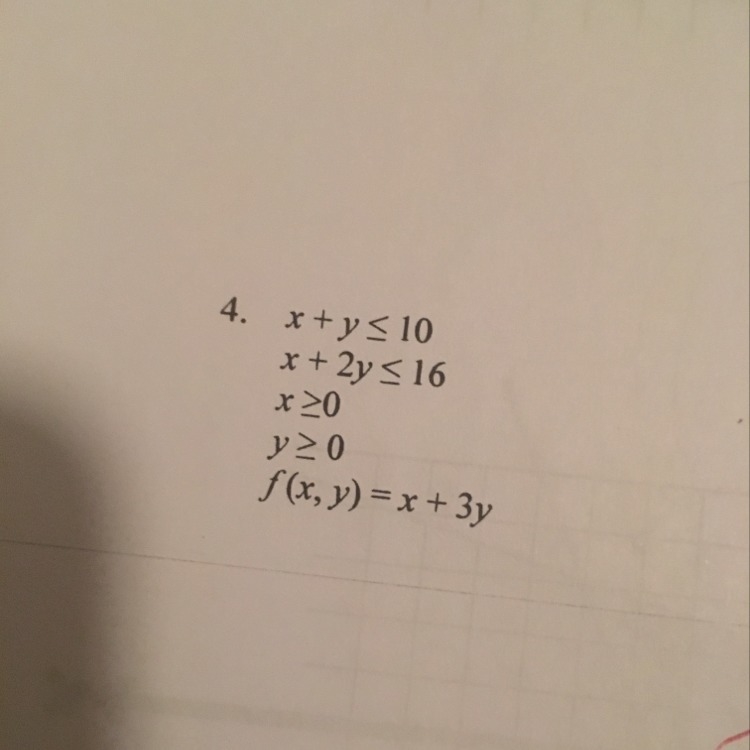 4. x + y ≤ 10
x + 2y ≤ 16
x ≥0
y ≥ 0
f (x, y) = x + 3y